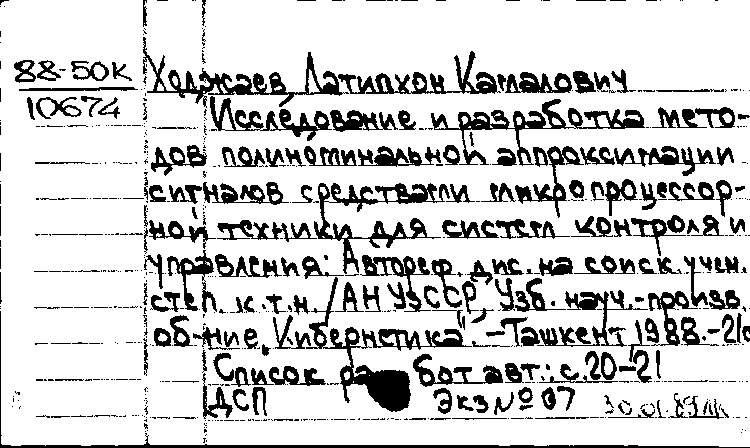 88-50к
10674
Ходжаев Латипхон Камалович
Исследование и разработка мето-
дов полиноминальной аппроксимации
сигналов средствами микропроцессор-
ной техники для систем контроля и
управления: Автореф. дис. на соиск. учен.
степ. к.т.н. / АН УзССР, Узб. науч.-произв.
об-ние "Кибернетика". – Ташкент, 1988. – 21с
Список работ авт.: с.20–21
ДСП Экз № 07 30.01.89